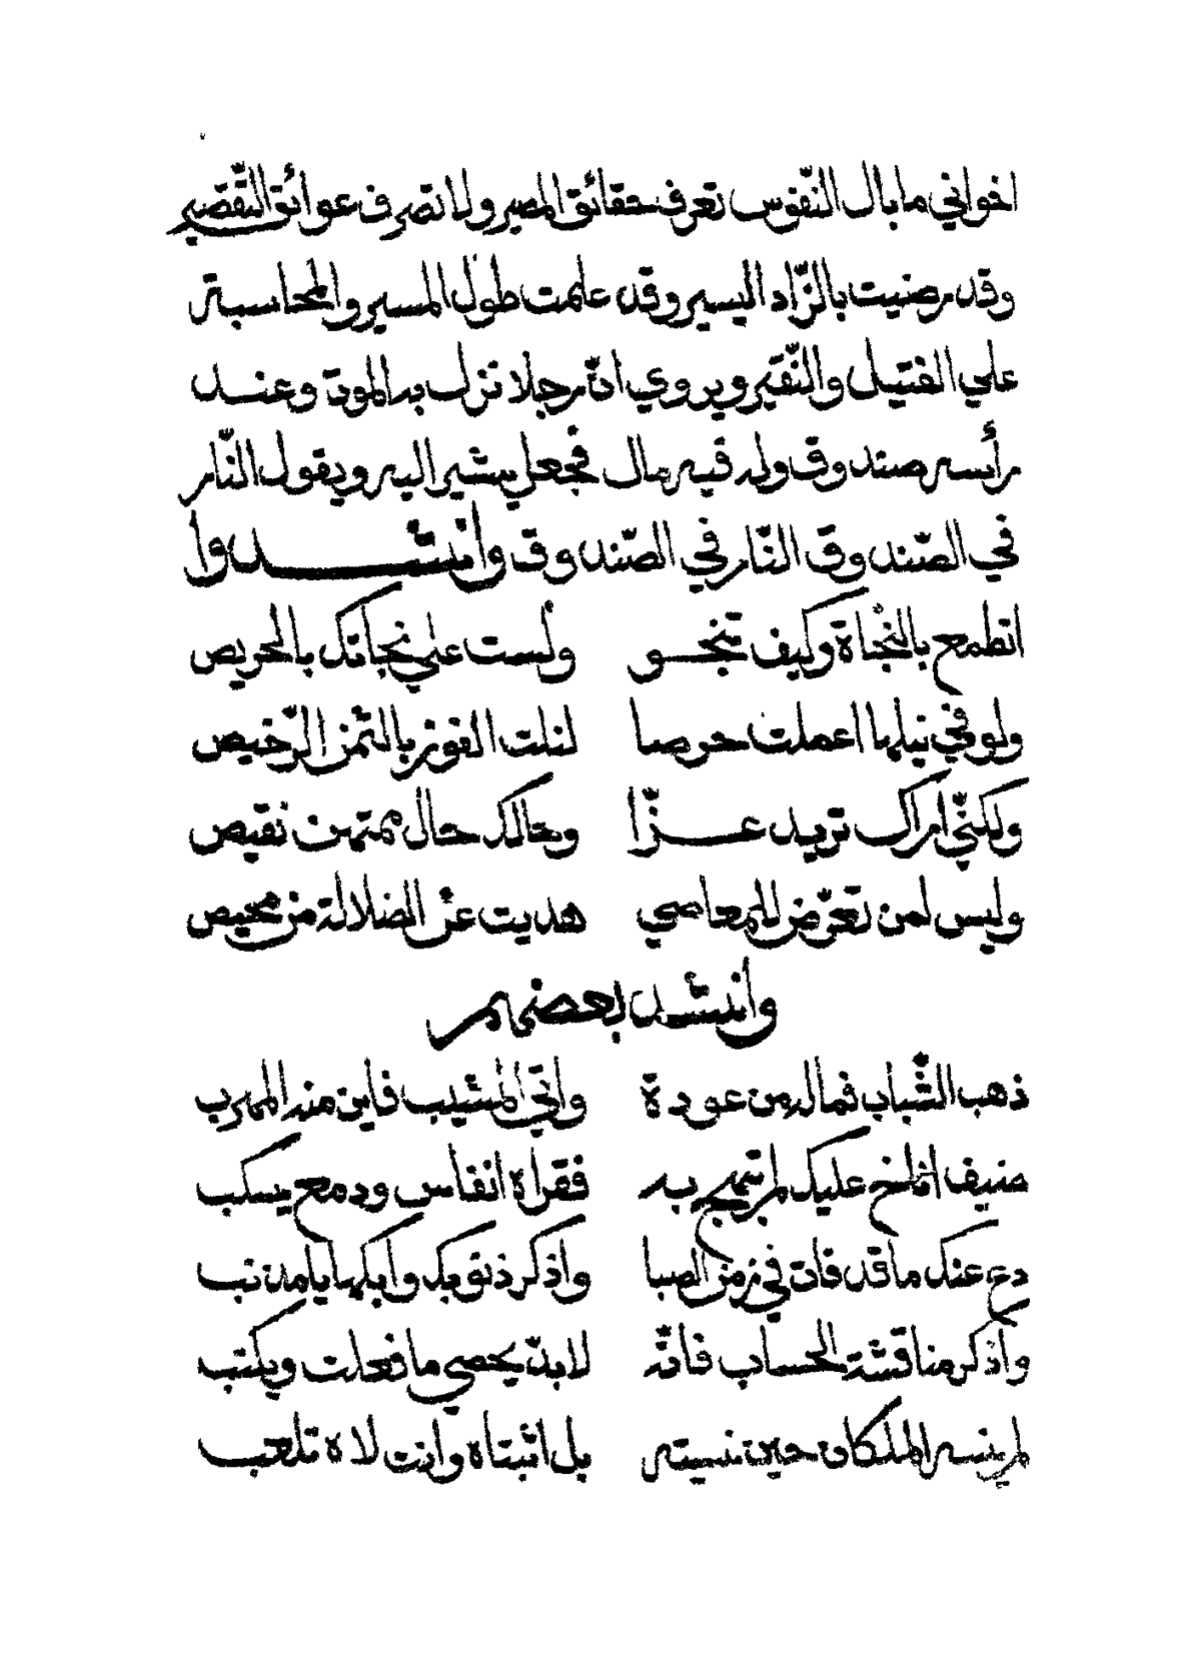 اخواني ما بال النّفوس تعرف حقائق المصير ولا تصرف عوائق التّقصير
وقد رضيت بالزّاد اليسير وقد علمت طول المسير والمحاسبة
علي الفتيل والنّقير ويروي انّ رجلا نزل به الموت وعند
رأسه صندوق وله فيه مال فجعل يشير اليه ويقول النّار
في الصّندوق النّار في الصّندوق وأنشدوا
اتطمع بالنّجاة وكيف تنجو ولست علي نجاتك بالحريص
ولو في نيلها اعملت حرصا لنلت الفوز بالثّمن الرّخيص
ولكنّي اراك تريد عزّا وحالك حال ممتهن نقيص
وليس لمن تعرّض للمعاصي هديت عن الضلالة من محيص
وأنشد بعضهم
ذهب الشّباب فما له من عودة واتي المشيب فاين منه المهرب
ضيف الخ عليك لم تسمح به فقراه انفاس ودمع يسكب
دع عنك ما قد فات في زمن الصبا واذكر ذنوبك وابكها يا مذنب
واذكر مناقشة الحساب فانّه لا بدّ يحصي ما فعلت ويكتب
لم ينسه الملكان حين نسيته بل اثبتاه وانت لاه تلعب